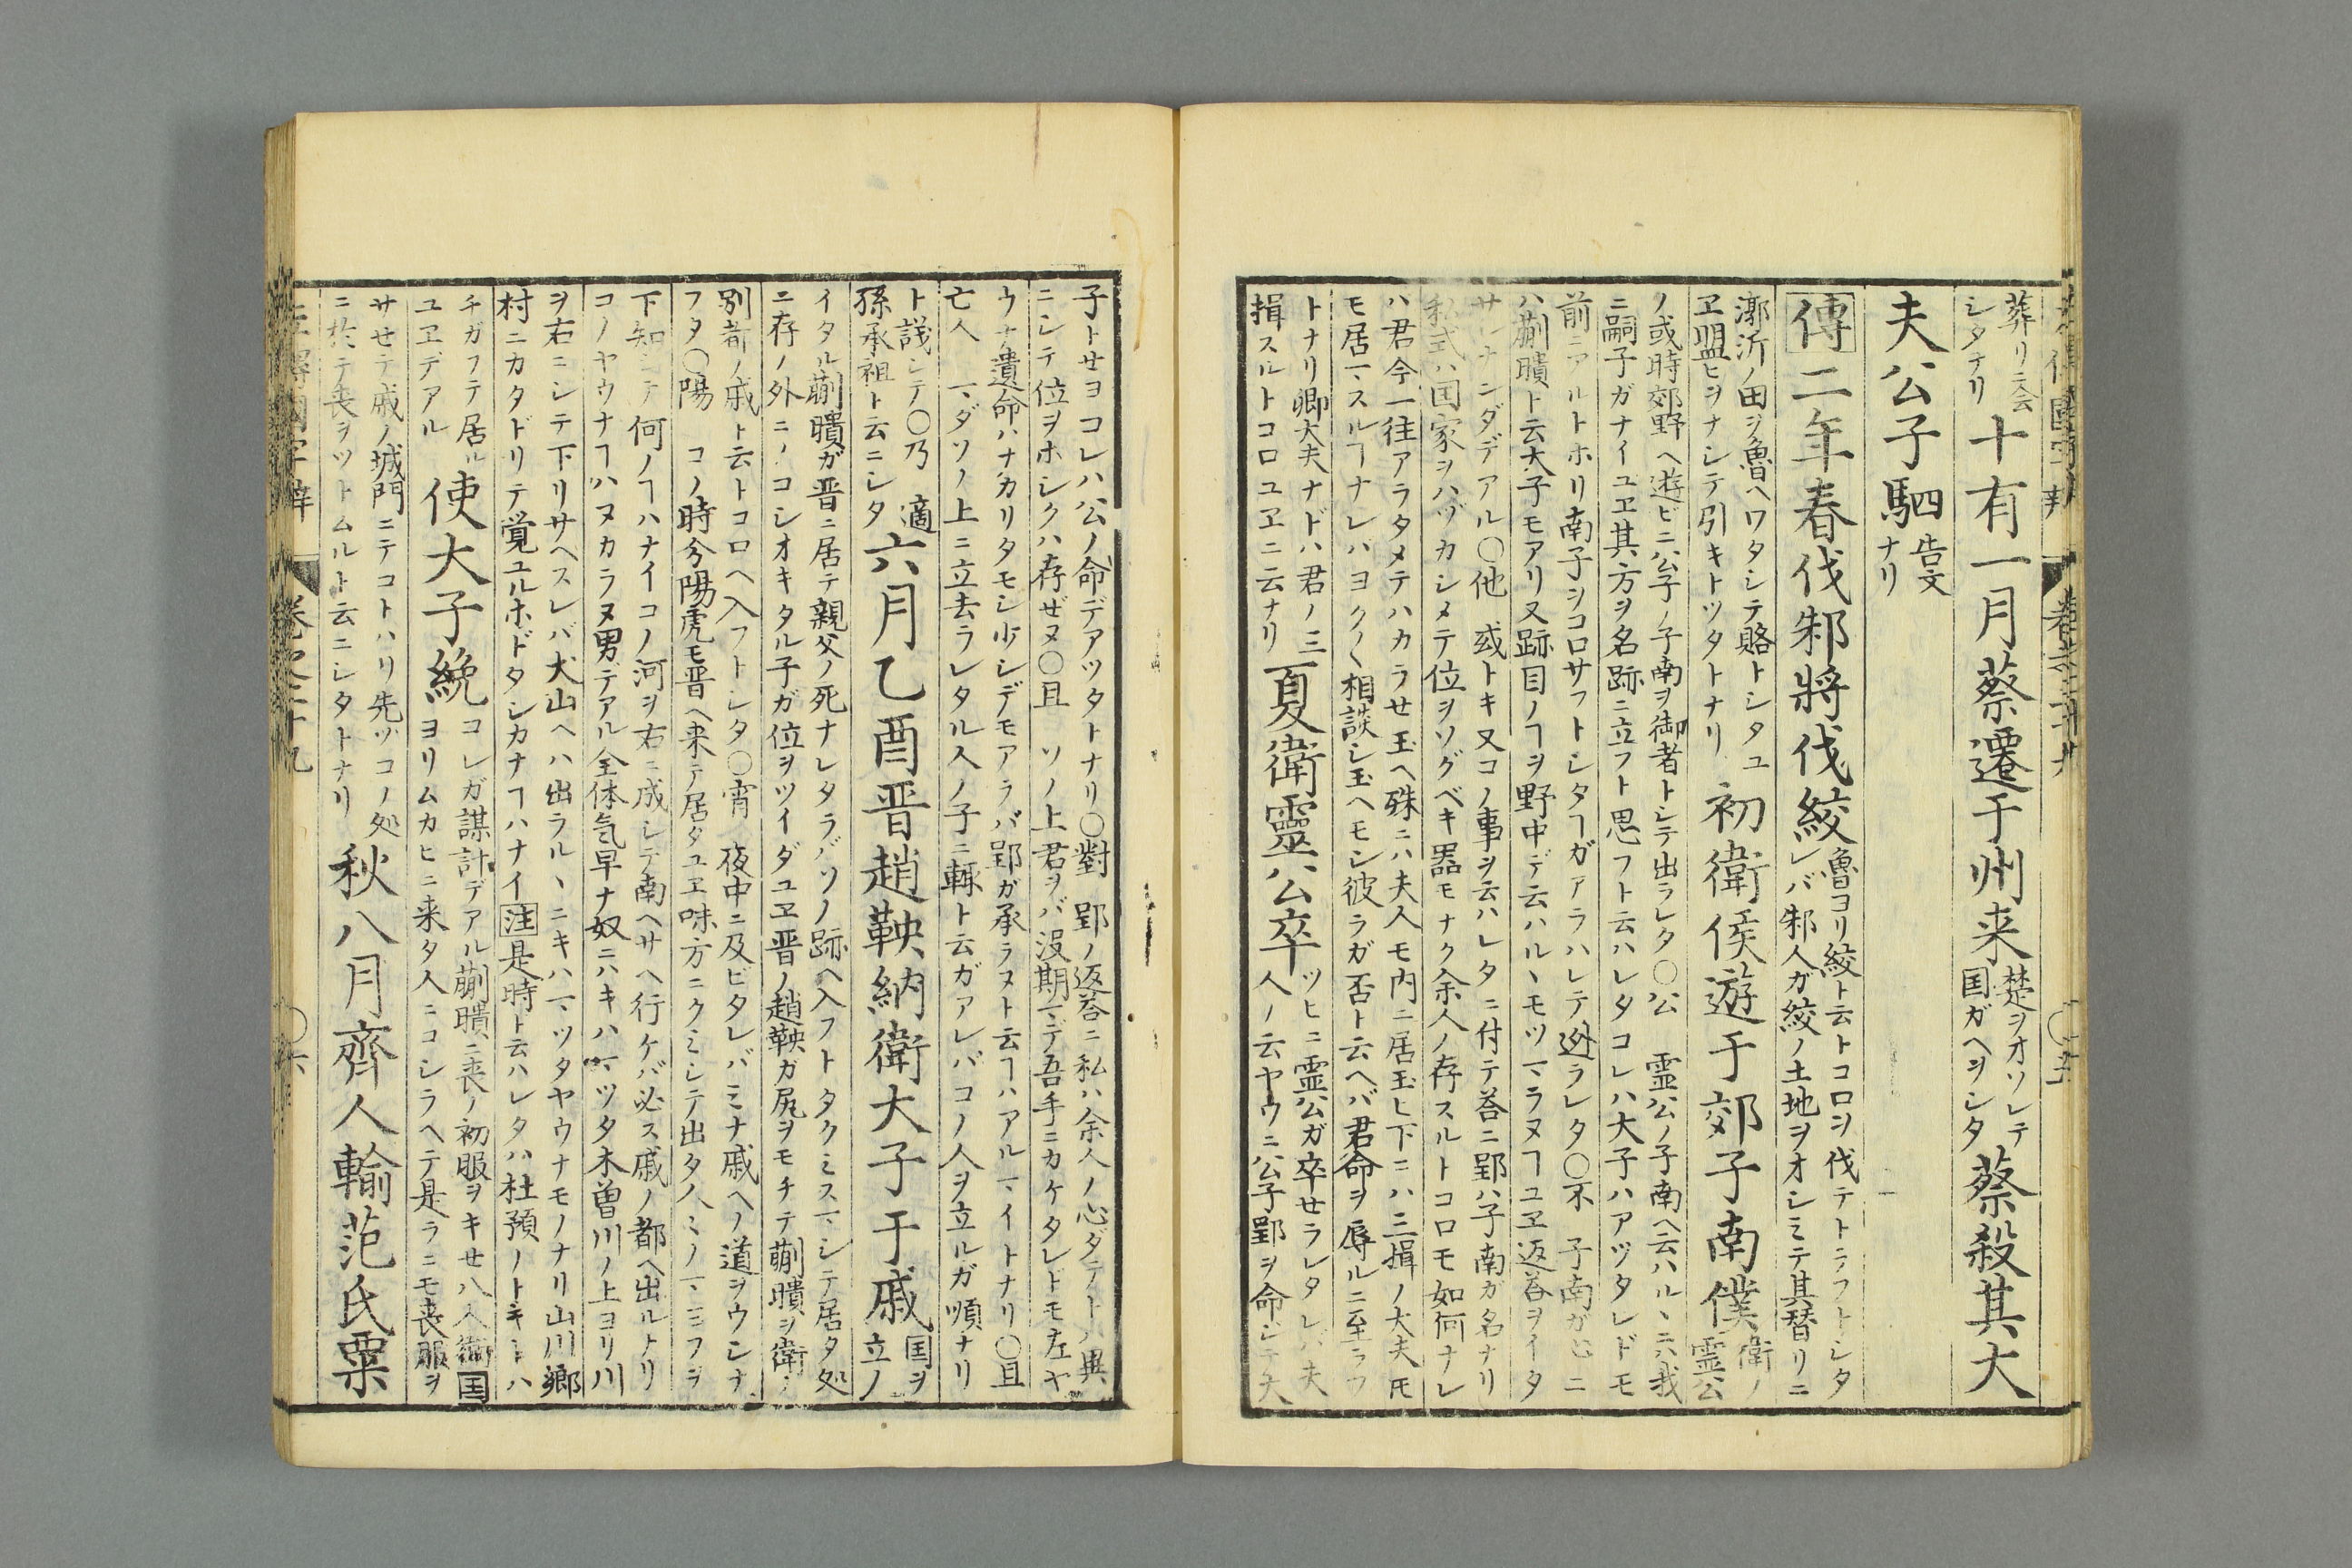 葬リニ会
シタナリ
十有一月蔡遷于州来
楚ヲオソレテ
国ガヘヲシタ
蔡殺其大
夫公子駟
告文
ナリ
傳二年春伐邾將伐絞
魯ヨリ絞ト云トコロヲ伐テトラフトシタ
レバ邾人ガ絞ノ土地ヲオシミテ其替リニ
漷沂ノ田ヲ魯ヘワタシテ賂トシタユ
ヱ盟ヒヲナシテ引キトツタトナリ
初衛侯遊于郊子南僕
衛ノ
霊公
ノ或時郊野ヘ遊ビニ公子ノ子南ヲ御者トシテ出ラレタ〇公 霊公ノ子南ヘ云ハルヽニ六我
ニ嗣子ガナイユヱ其方ヲ名跡ニ立フト思フト云ハレタコレハ大子ハアツタレドモ
前ニアルトホリ南子ヲコロサフトシタヿガアラハレテ迯ラレタ〇不 子南ガ心ニ
ハ蒯聵ト云大子モアリ又跡目ノヿヲ野中デ云ハルヽモツマラヌヿユヱ返荅ヲイタ
サレナンダデアル〇他 或トキ又コノ事ヲ云ハレタニ付テ荅ニ郢ハ子南ガ名ナリ
私式ハ国家ヲハヅカシメテ位ヲツグベキ器モナク余人ノ存スルトコロモ如何ナレ
ハ君今一往アラタメテハカラせ玉ヘ殊ニハ夫人モ内ニ居玉ヒ下ニハ三揖ノ大夫𪜈
モ居マスルヿナレバヨク〱相談シ玉ヘモシ彼ラガ否ト云ヘバ君命ヲ辱ルニ至ラフ
トナリ卿大夫ナドハ君ノ三
揖スルトコロユヱニ云ナリ
夏衛靈公卒
ツヒニ霊公ガ卒せラレタレバ夫
人ノ云ヤウニハ公子郢ヲ命シテ大
子トサヨコレハ公ノ命デアツタトナリ〇對 郢ノ返荅ニ私ハ余人ノ心ダテト異
ニシテ位ヲホシクハ存ぜヌ〇且 ソノ上君ヲバ没期マデ吾手ニカケタレドモ左ヤ
ウナ遺命ハナカリタモシ少シデモアラバ郢ガ承ラヌト云ヿハアルマイトナリ〇且
亡人 マダソノ上ニ立去ラレタル人ノ子ニ輙ト云ガアレバコノ人ヲ立ルガ順ナリ
ト議シテ〇乃 適
孫承祖ト云ニシタ
六月乙酉晋趙鞅納衛大子于戚
国ヲ
立ノ
イタル蒯聵ガ晋ニ居テ親父ノ死ナレタラバソノ跡ヘ入フトタクミスマシテ居タ処
ニ存ノ外ニノコシオキタル子ガ位ヲツイダユヱ晋ノ趙鞅ガ尻ヲモチテ蒯聵ヲ衛ノ
別都ノ戚ト云トコロヘ入フトシタ〇宵 夜中ニ及ビタレバミナ戚ヘノ道ヲウシナ
フタ〇陽 コノ時分陽虎モ晋ヘ来テ居タユヱ味方ニクミシテ出タ
下知シテ何ノヿハナイコノ河ヲ右ニ成シテ南ヘサヘ行ケバ必ス戚ノ都ヘ出ルトリ
コノヤウナヿハヌカラヌ男デアル全体気早ナ奴ニハキハマツタ木曽川ノ上ヨリ川
ヲ右ニシテ下リサヘスレバ犬山ヘハ出ラルヽニキハマツタヤウナモノナリ山川郷
村ニカタドリテ覚ユルホドタシカナヿハナイ注是時ト云ハレタハ杜預ノトキニハ
チガフテ居ル
ユヱデアル
使大子絻
コレガ謀計デアル蒯聵ニ喪ノ初服ヲキせ八人衛国
ヨリムカヒニ来タ人ニコシラヘテ是ラニモ喪服ヲ
サせテ戚ノ城門ニテコトハリ先ヅコノ処
ニ於テ喪ヲツトムルト云ニシタトナリ
秋八月齊人輸范氏粟